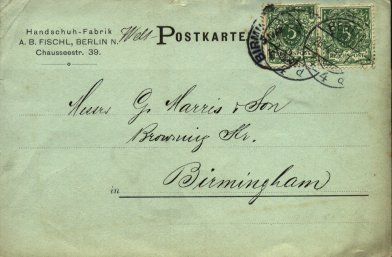 Handschuh-Fabrik
A. B. FISCHL, BERLIN N.
Chausseestr. 39.
Welt POSTKARTE
5 5
Messrs G. Harris & Son
Browning Str.
in Birmingham